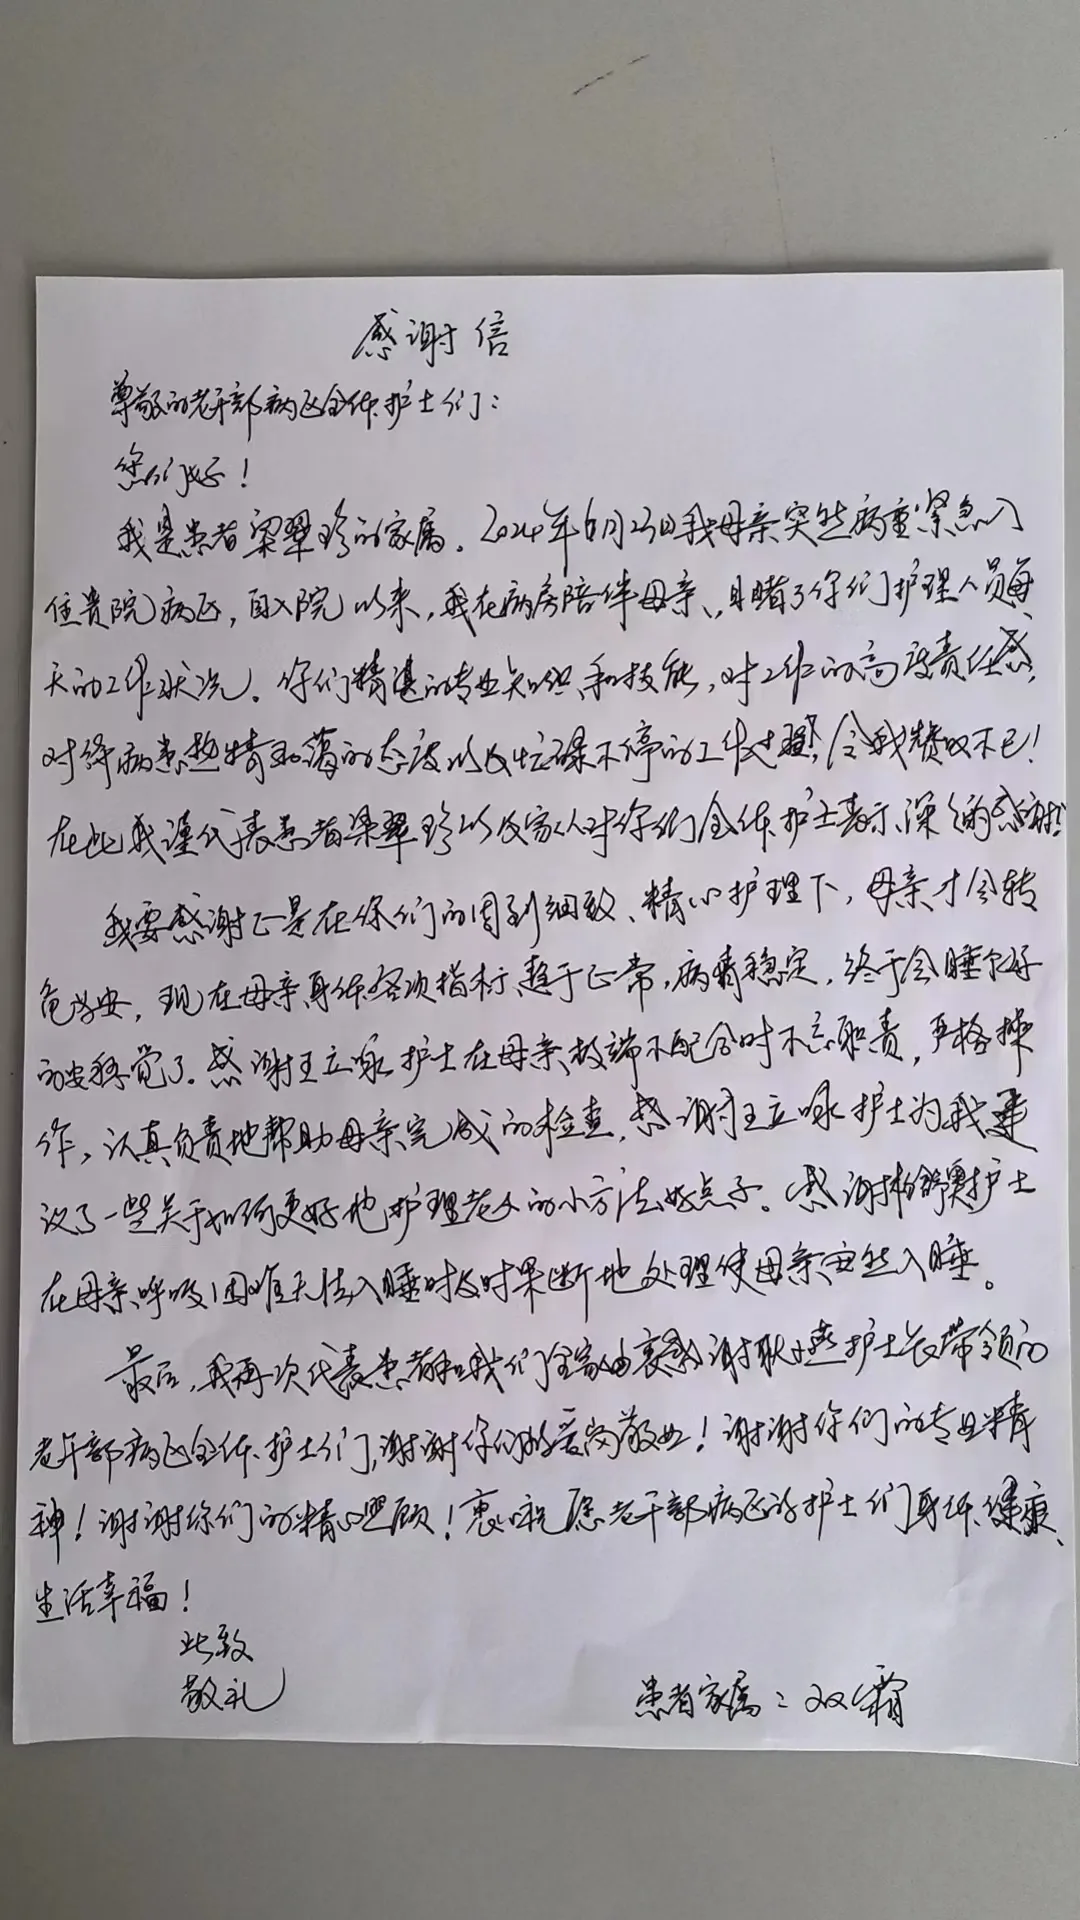 感谢信
尊敬的老干部病区全体护士们：
您们好！
我是患者梁翠珍的家属。2024年6月23日我母亲突然病重紧急入
住贵院病区，自入院以来，我在病房陪伴母亲，目睹了你们护理人员每
天的工作状况。你们精湛的专业知识和技能，对工作的高度责任感，
对待病患热情的态度以及忙碌不停的工作，令我赞叹不已！
在此我谨代表患者梁翠珍以及家人对你们全体护士表示深深的感谢！
我要感谢正是在你们的周到细致、精心护理下，母亲才会转
危为安，现在母亲身体各项指标趋于正常，病情稳定，终于会睡个好
的安稳觉了。感谢王立咏护士在母亲极端不配合时不忘职责，严格操
作，认真负责地帮助母亲完成的检查，感谢王立咏护士为我建
议了一些关于如何更好地护理老人的小方法好点子。感谢护士
在母亲呼吸困难无法入睡时及时果断地处理使母亲安然入睡。
最后，我再次代表患者和我们全家由衷感谢耿小燕护士长带领的
老干部病区全体护士们，谢谢你们的爱岗敬业！谢谢你们的专业精
神！谢谢你们的精心照顾！衷心祝愿老干部病区的护士们身体健康、
生活幸福！
此致
敬礼
患者家属：双霜